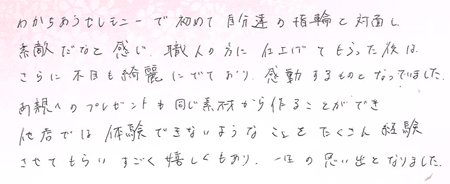 わかちあうセレモニーで初めて自分達の指輪と対面し
素敵だなと感じ、職人の方に仕上げてもらった後は、
さらに木目も綺麗にでており、感動するものとなっていました。
両親へのプレゼントも同じ素材から作ることができ
他店では体験できないようなことをたくさん経験
させてもらいすごく嬉しくもあり、一生の思い出となりました。